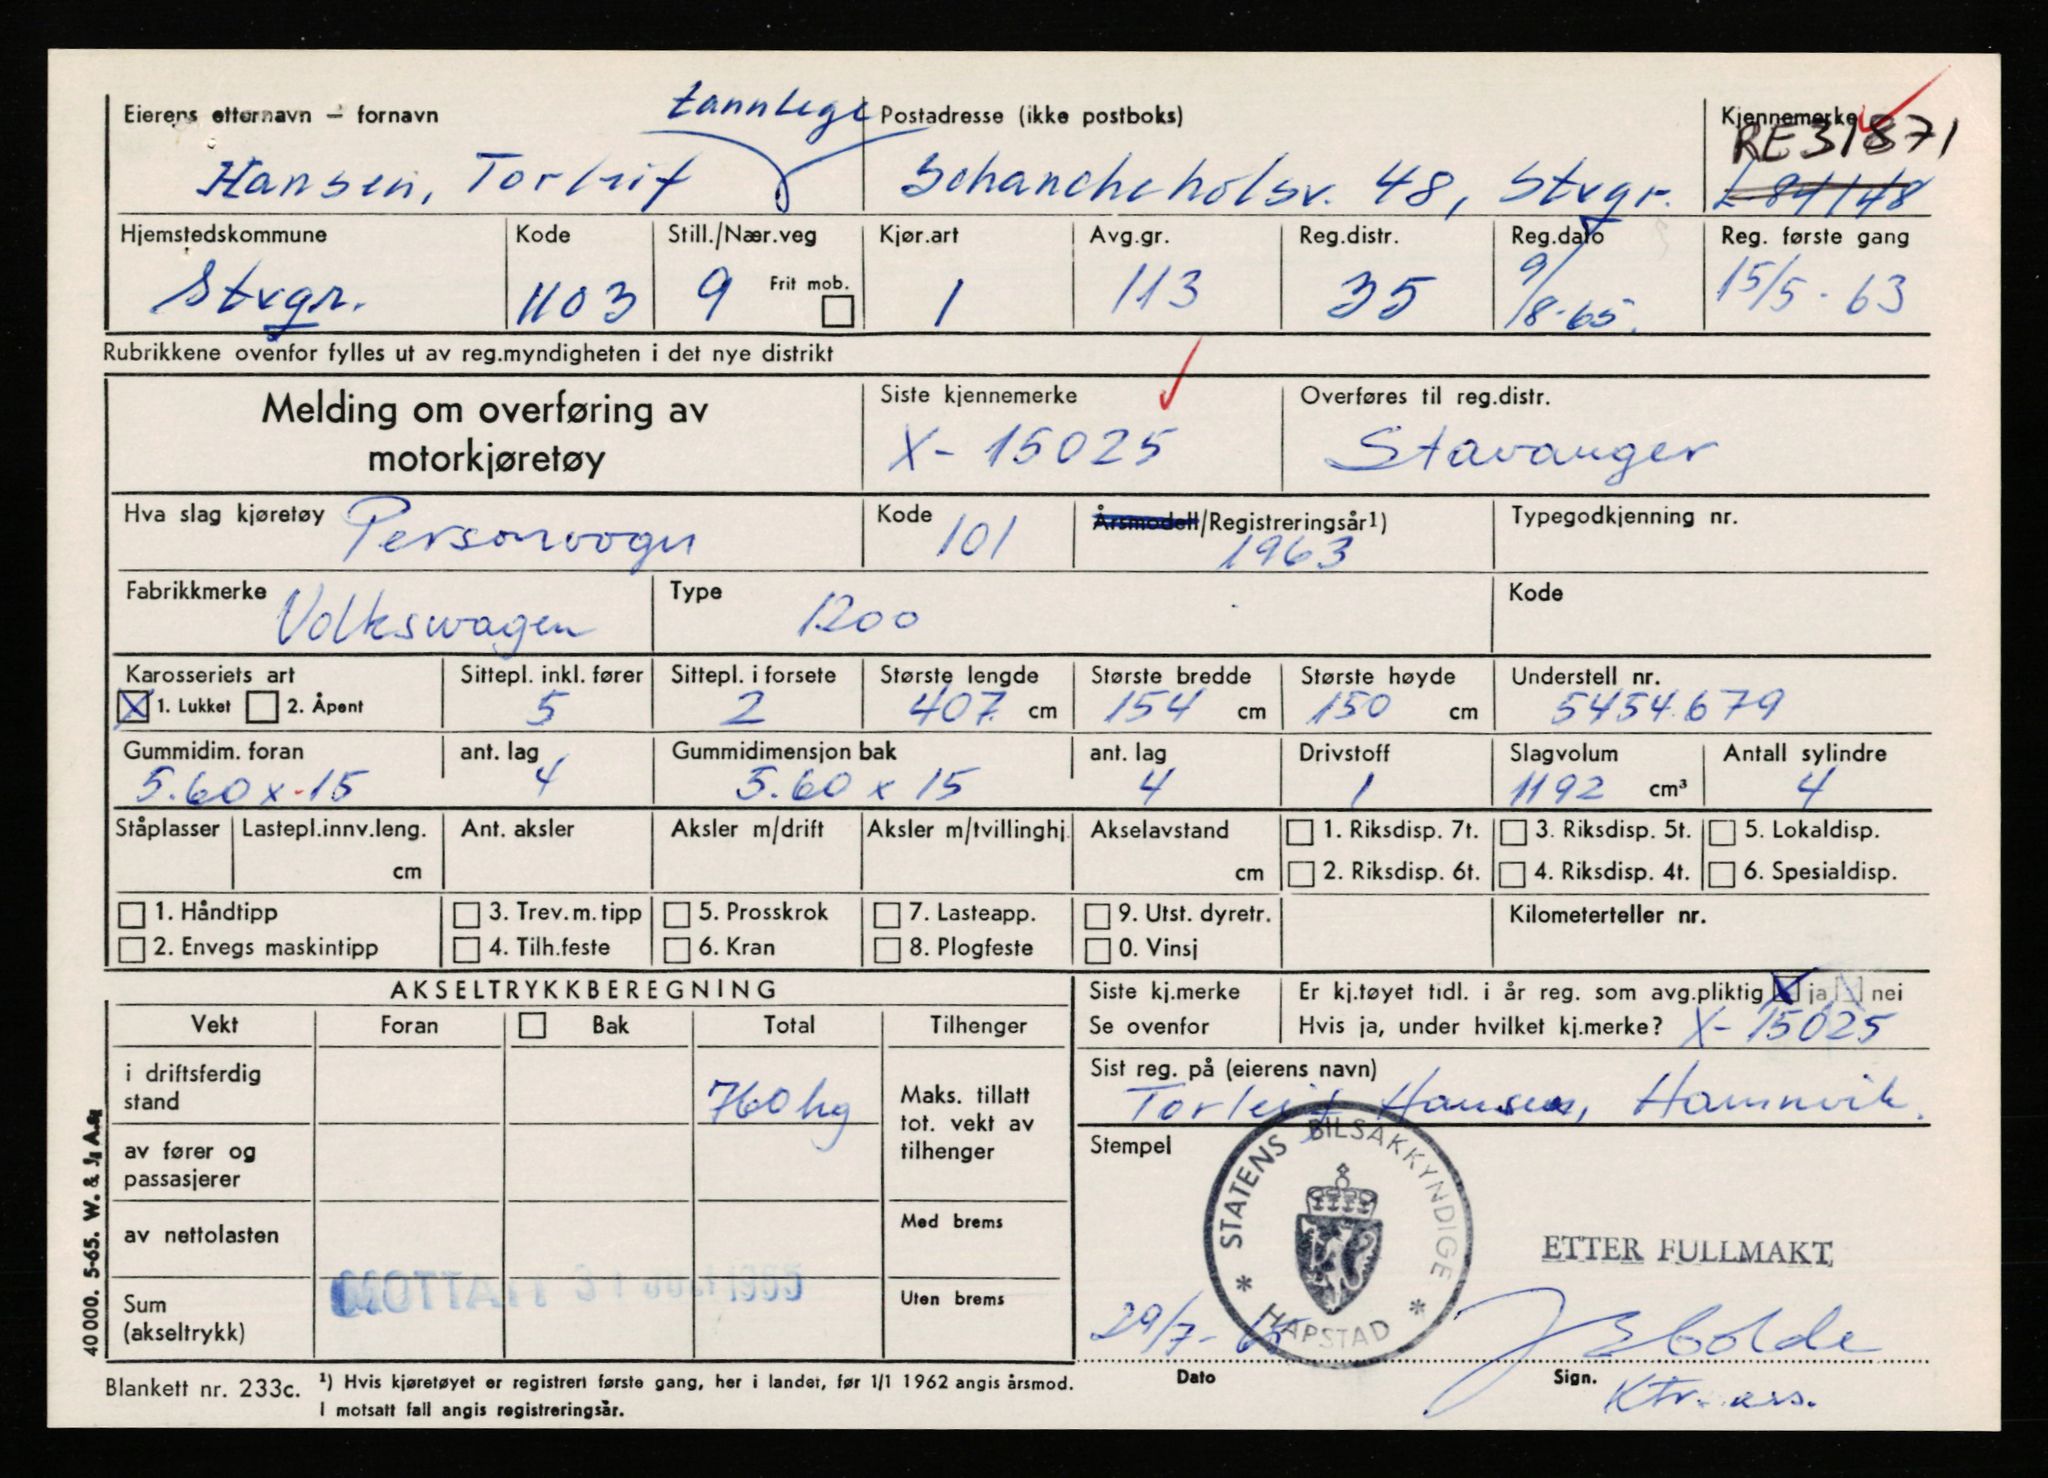 Eierens etternavn – fornavn tannlege Postadresse (ikke postboks) Kjennemerke
RE31871
Hansen, Torleif Schancheholsv. 48, Stvgr. L-84148
Hjemstedskommune Kode Still./Nær.veg Kjør.art Avg.gr. Reg.distr. Reg.dato Reg. første gang
Stvgr. 1103 9 Frit mob. 1 113 35 9/8-65. 15/5-63
Rubrikkene ovenfor fylles ut av reg.myndigheten i det nye distrikt
Melding om overføring av motorkjøretøy
Siste kjennemerke Overføres til reg.distr.
X-15025 Stavanger
Hva slag kjøretøy Personvogn Kode 101 Årsmodell/Registreringsår1) 1963 Typegodkjenning nr.
Fabrikkmerke Volkswagen Type 1200 Kode
Karosseriets art Sittepl. inkl. fører Sittepl. i forsete Største lengde Største bredde Største høyde Understell nr.
X 1. Lukket 2. Åpent 5 2 407 cm 154 cm 150 cm 5454679
Gummidim. foran ant. lag Gummidimensjon bak ant. lag Drivstoff Slagvolum Antall sylindre
5.60 x 15 4 5.60 x 15 4 1 1192 cm³ 4
Ståplasser Lastepl.innv.leng. Ant. aksler Aksler m/drift Aksler m/tvillinghj. Akselavstand 1. Riksdisp. 7t. 3. Riksdisp. 5t. 5. Lokaldisp.
cm cm 2. Riksdisp. 6t. 4. Riksdisp. 4t. 6. Spesialdisp.
1. Håndtipp 3. Trev.m.tipp 5. Prosskrok 7. Lasteapp. 9. Utst. dyretr. Kilometerteller nr.
2. Envegs maskintipp 4. Tilh.feste 6. Kran 8. Plogfeste 0. Vinsj
AKSELTRYKKBEREGNING
Vekt Foran Bak Total Tilhenger
i driftsferdig stand 760 kg Maks. tillatt tot. vekt av tilhenger
av fører og passasjerer
av nettolasten Med brems
Sum (akseltrykk) Uten brems
MOTTATT 31 JULI 1965
Siste kj.merke Er kj.tøyet tidl. i år reg. som avg.pliktig X ja nei
Se ovenfor Hvis ja, under hvilket kj.merke? X-15025
Sist reg. på (eierens navn)
Torleif Hansen, Hamnvik.
Stempel
STATENS BILSAKKYNDIGE
* HARSTAD *
ETTER FULLMAKT
29/7-65
Dato Sign.
Ktr. ass.
40 000. 5-65. W. &
Blankett nr. 233c. ¹) Hvis kjøretøyet er registrert første gang, her i landet, før 1/1 1962 angis årsmod.
I motsatt fall angis registreringsår.